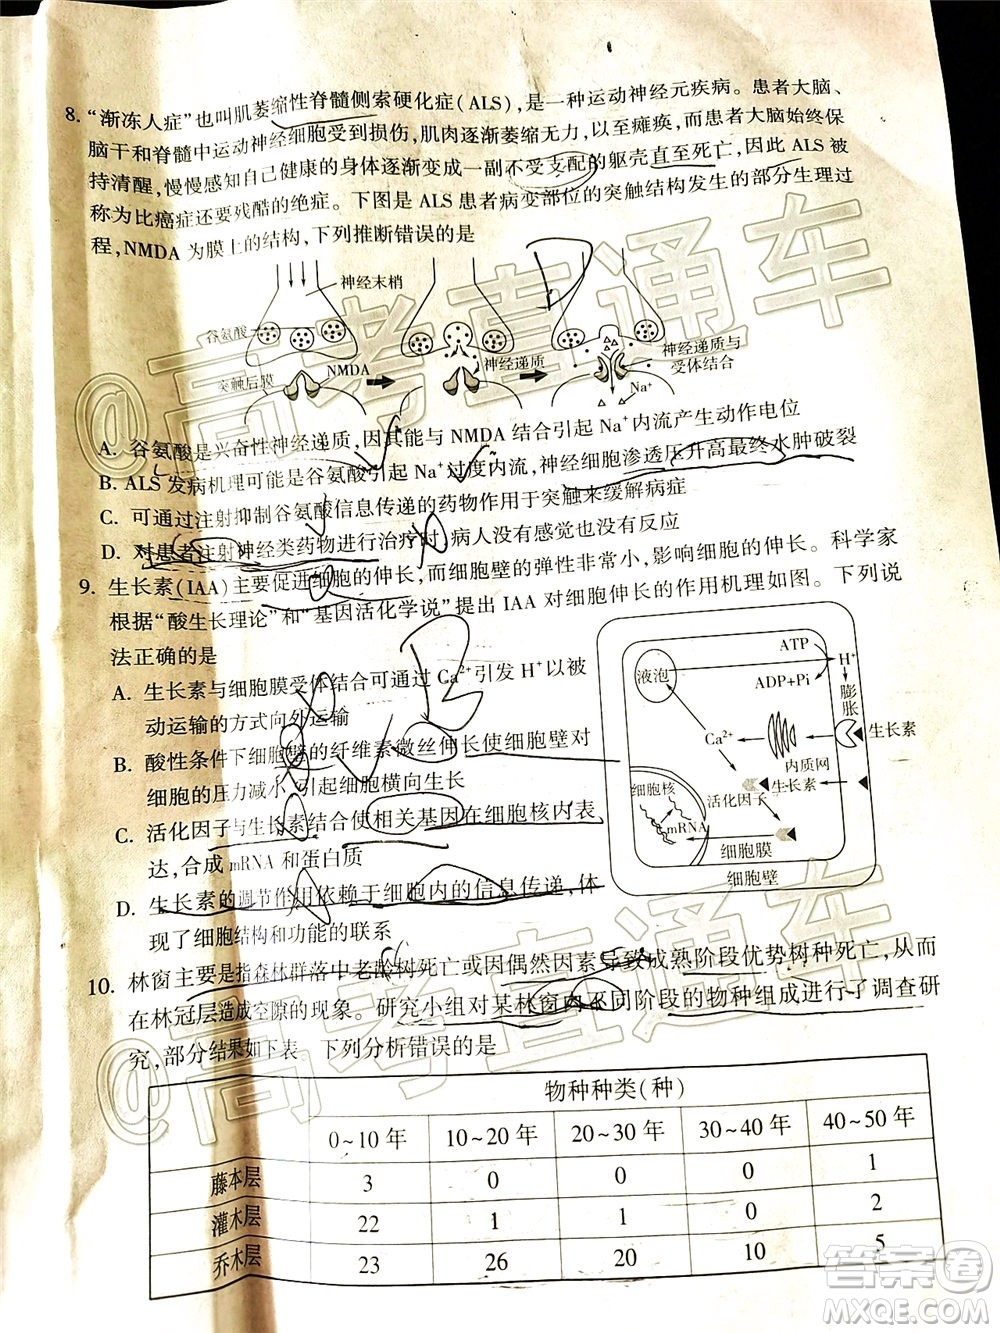 8. “渐冻人症”也叫肌萎缩性脊髓侧索硬化症(ALS),是一种运动神经元疾病。患者大脑、
脑干和脊髓中运动神经细胞受到损伤,肌肉逐渐萎缩无力,以至瘫痪,而患者大脑始终保
持清醒,慢慢感知自己健康的身体逐渐变成一副不受支配的躯壳直至死亡,因此 ALS 被
称为比癌症还要残酷的绝症。下图是 ALS 患者病变部位的突触结构发生的部分生理过
程,NMDA 为膜上的结构,下列推断错误的是
神经末梢
谷氨酸
突触后膜
NMDA
神经递质
神经递质与
受体结合
Na⁺
A. 谷氨酸是兴奋性神经递质,因其能与 NMDA 结合引起 Na⁺ 内流产生动作电位
B. ALS 发病机理可能是谷氨酸引起 Na⁺ 过度内流,神经细胞渗透压升高最终水肿破裂
C. 可通过注射抑制谷氨酸信息传递的药物作用于突触来缓解病症
D. 对患者注射神经类药物进行治疗时,病人没有感觉也没有反应
D
9. 生长素(IAA)主要促进细胞的伸长,而细胞壁的弹性非常小,影响细胞的伸长。科学家
根据“酸生长理论”和“基因活化学说”提出 IAA 对细胞伸长的作用机理如图。下列说
法正确的是
A. 生长素与细胞膜受体结合可通过 Ca²⁺ 引发 H⁺ 以被
动运输的方式向外运输
B. 酸性条件下细胞壁的纤维素微丝伸长使细胞壁对
细胞的压力减小,引起细胞横向生长
C. 活化因子与生长素结合使相关基因在细胞核内表
达,合成 mRNA 和蛋白质
D. 生长素的调节作用依赖于细胞内的信息传递,体
现了细胞结构和功能的联系
B
液泡
ATP
H⁺
ADP+Pi
膨胀
Ca²⁺
生长素
内质网
细胞核
生长素
活化因子
mRNA
细胞膜
细胞壁
10. 林窗主要是指森林群落中老龄树死亡或因偶然因素导致成熟阶段优势树种死亡,从而
在林冠层造成空隙的现象。研究小组对某林窗内不同阶段的物种组成进行了调查研
究,部分结果如下表。下列分析错误的是
物种种类(种)
0~10 年 10~20 年 20~30 年 30~40 年 40~50 年
藤本层 3 0 0 0 1
灌木层 22 1 1 0 2
乔木层 23 26 20 10 5
@高考直通车
@高考直通车
答案圈
MXQE.COM